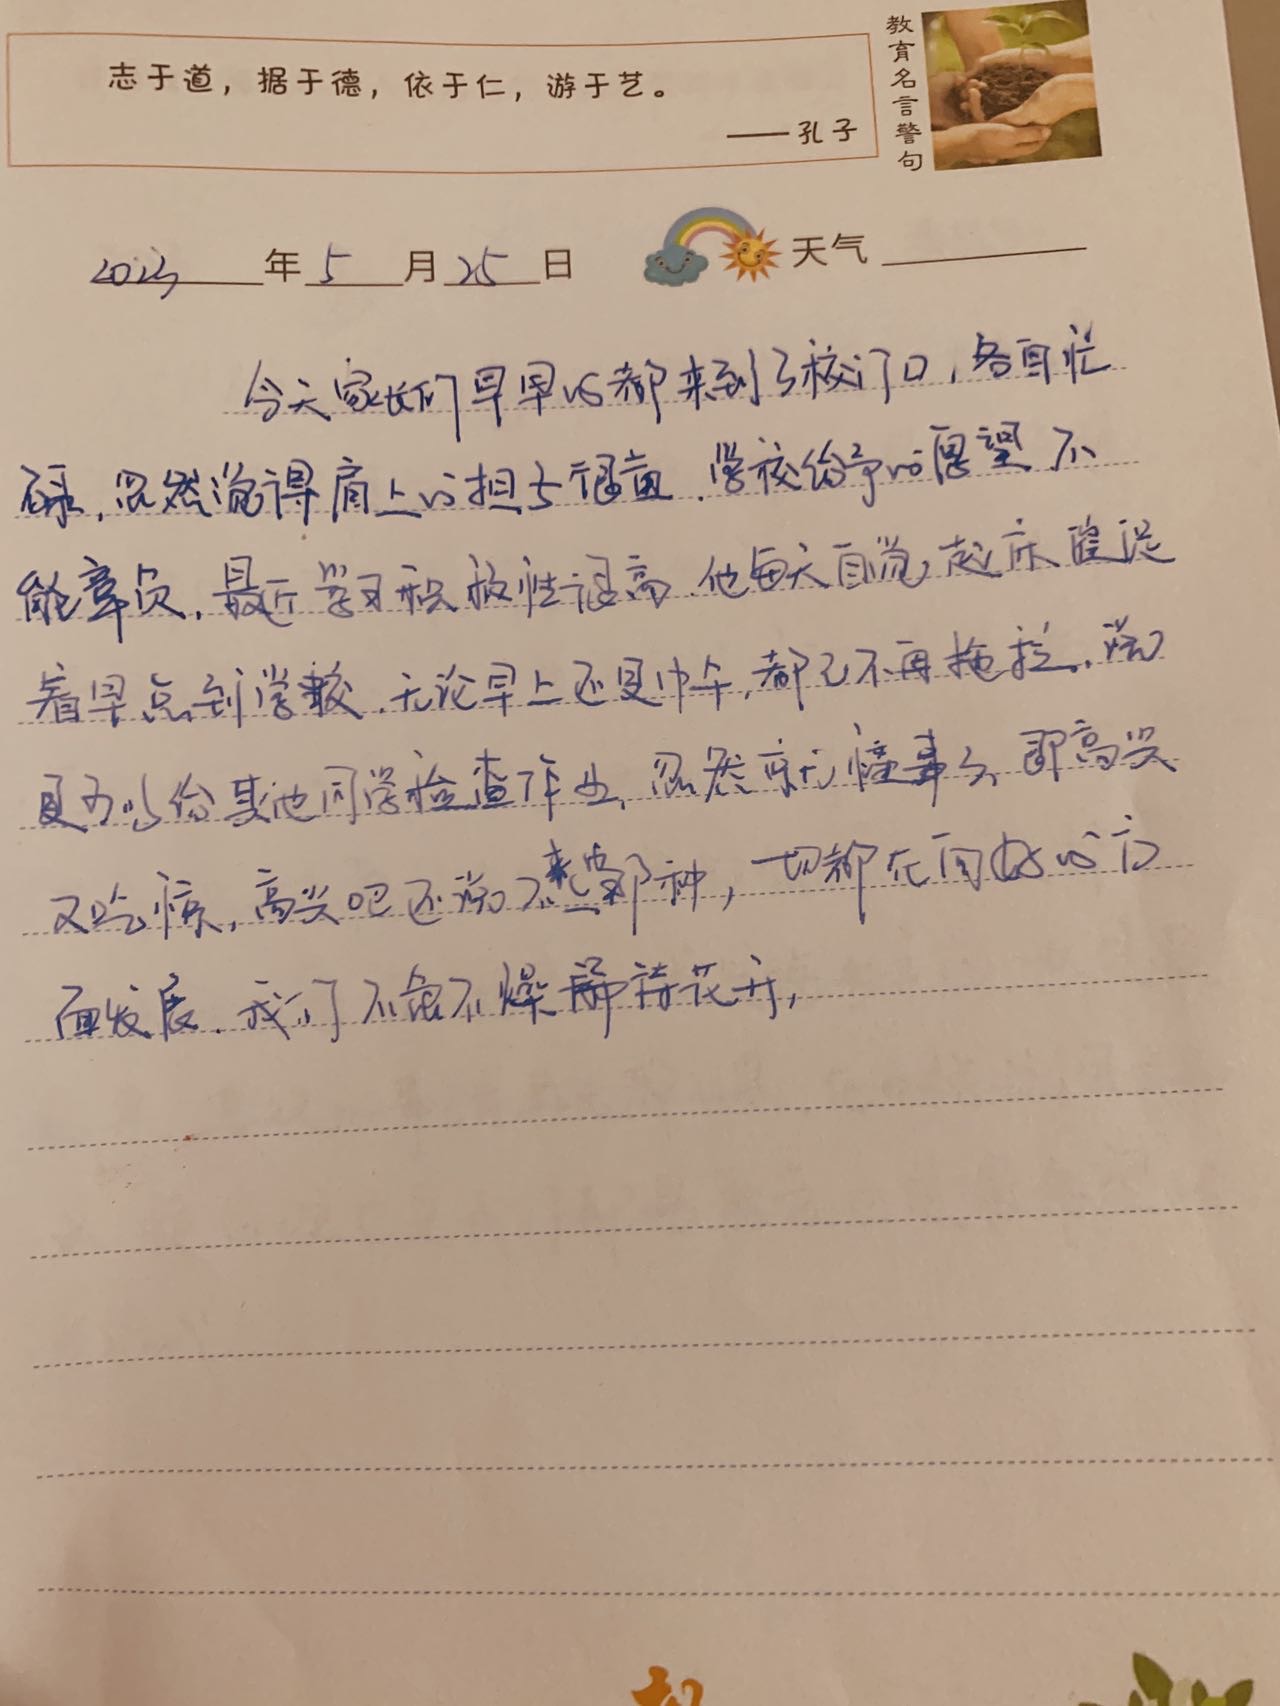 志于道，据于德，依于仁，游于艺。
——孔子
教育名言警句
2023年5月25日 天气
今天家长们早早的都来到了校门口，各自忙
碌，忽然觉得肩上的担子很重，学校给予的愿望不
能辜负，最近学习积极性很高，他每天自觉起床
着早点到学校，无论早上还是中午，都已不再拖拉，说
是可以给其他同学检查作业，忽然就懂事了，即高兴
又吃惊，高兴吧还说不出来那种，一切都在向好的方
面发展，我们不急不燥静待花开，